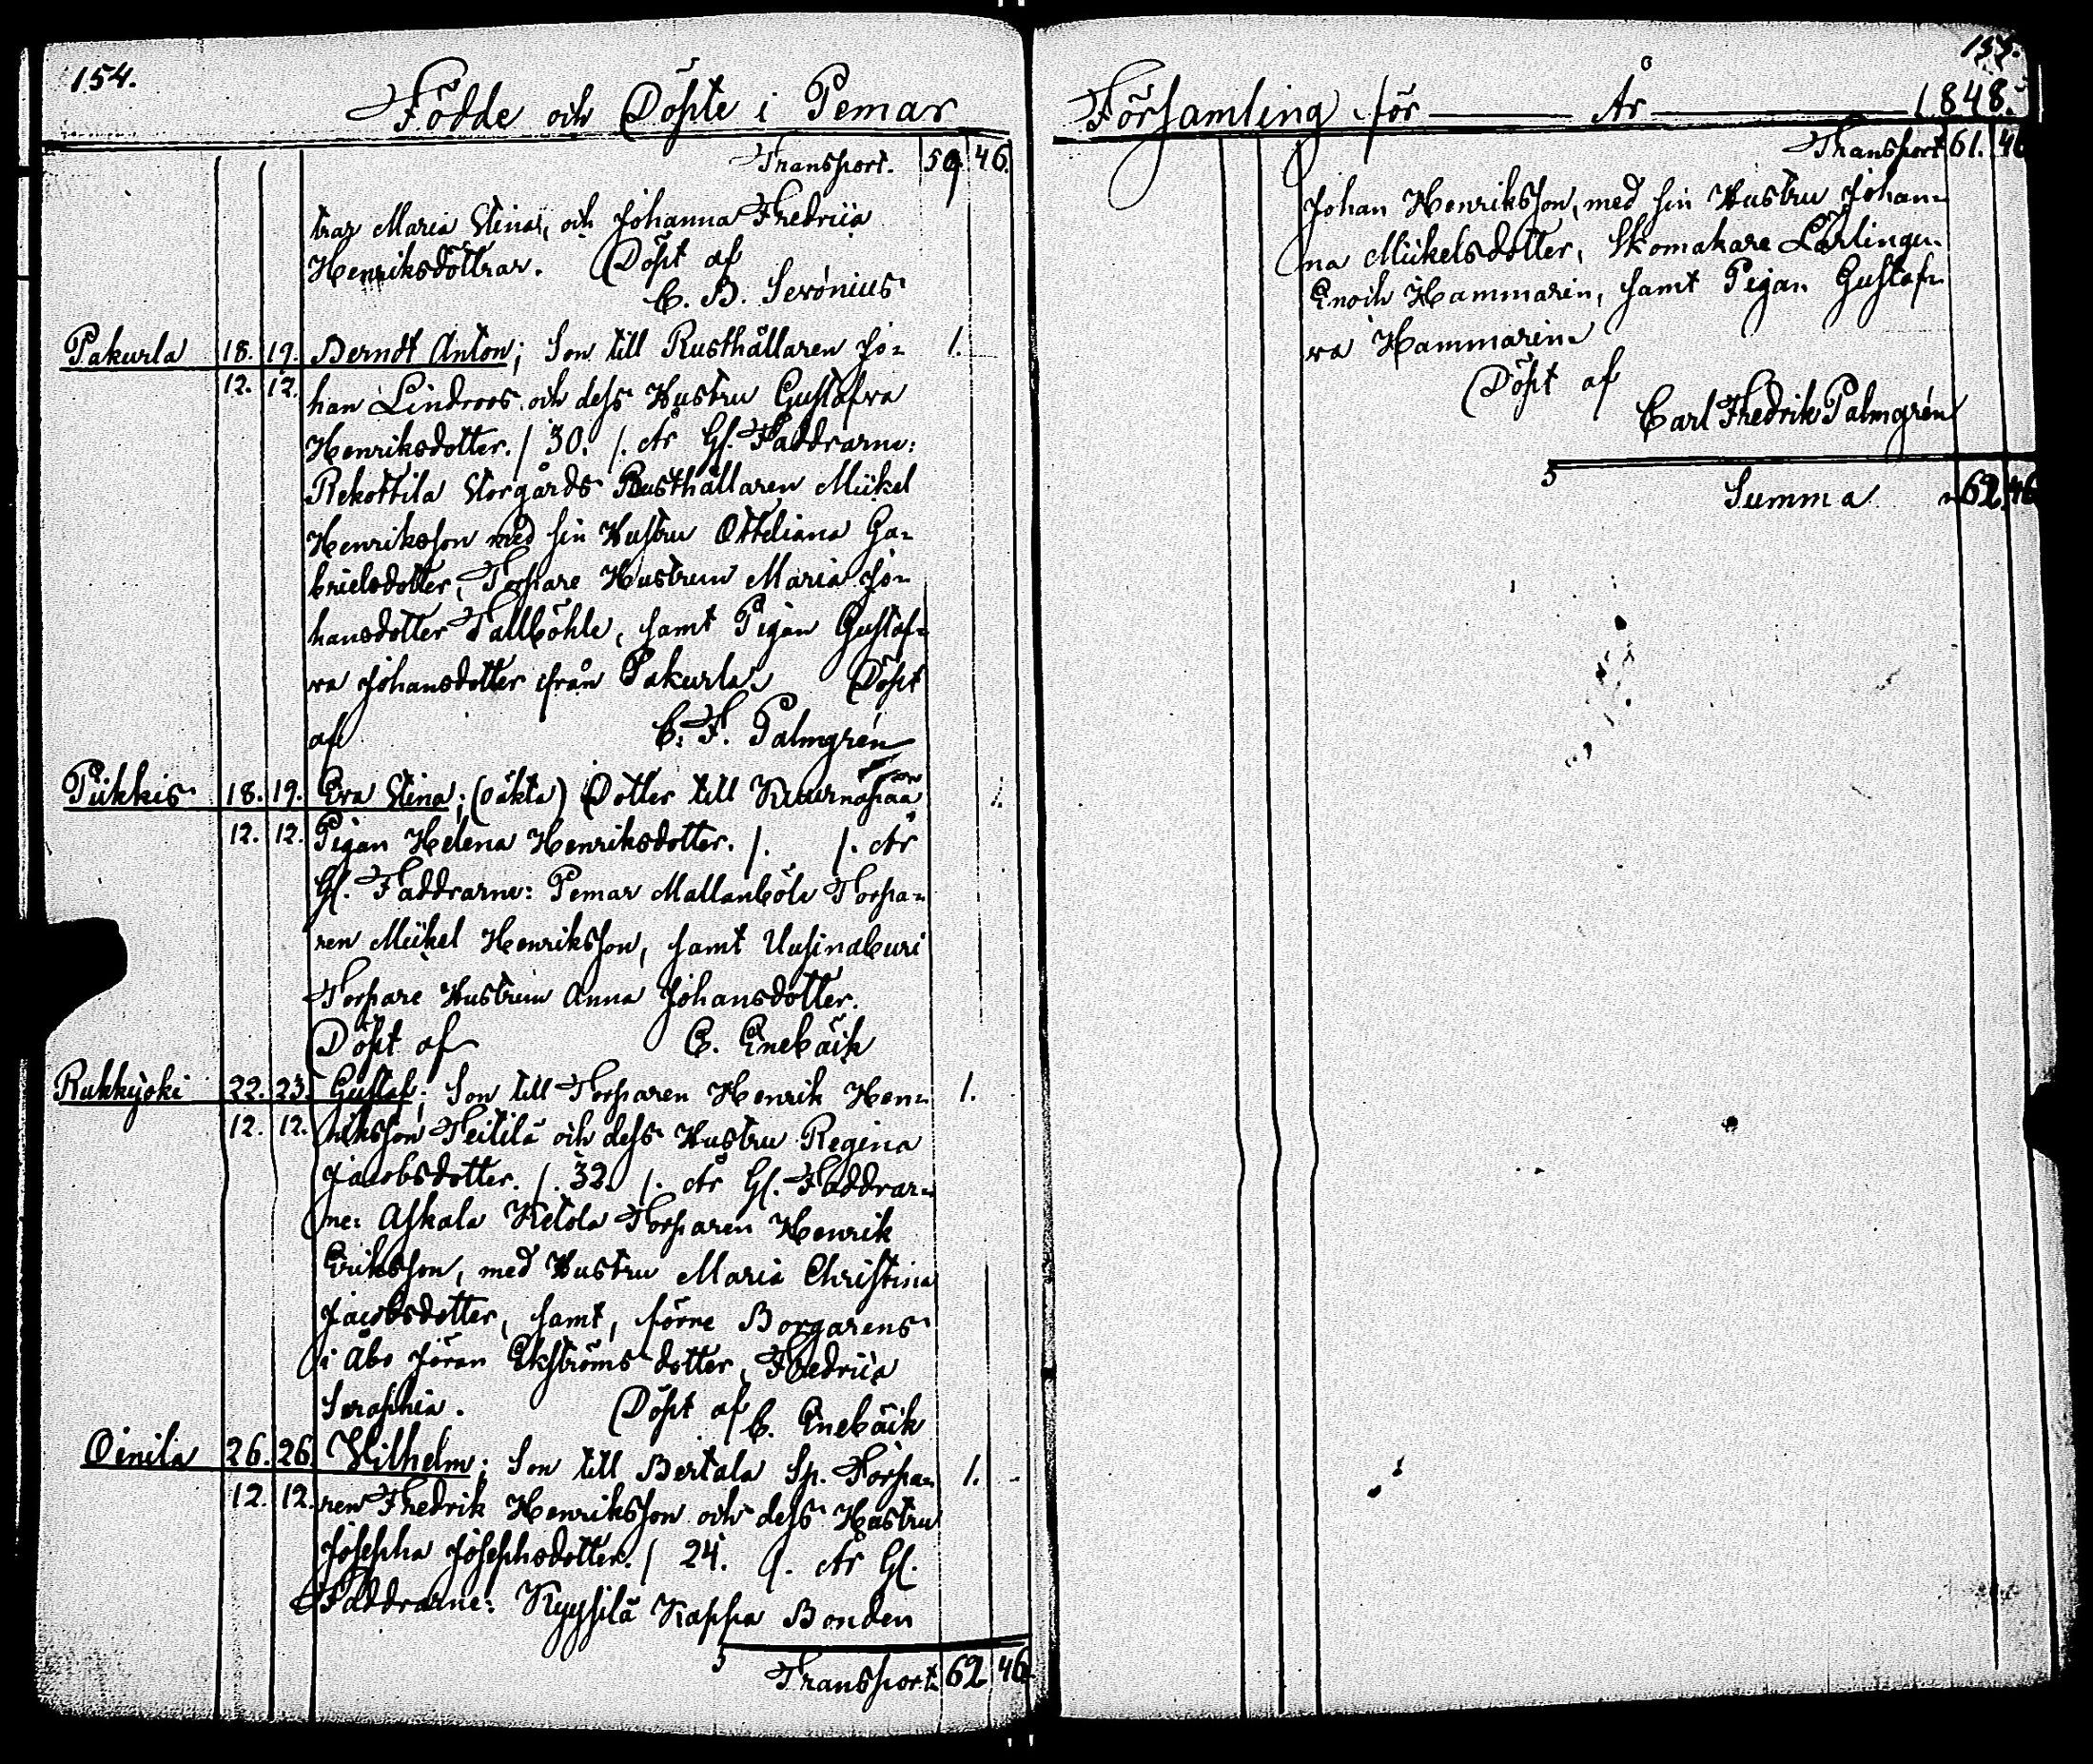 154.
Födde och Döpte i Pemar
Transport. 59. 46.
trar Maria Stina, och Johanna Fredrica
Henriksdöttrar. Döpt af
C. B. Serónius
Pakurla 18. 19. Berndt Anton; Son till Rusthållaren Jo= 1.
12. 12. han Lindroos och dess Hustru Gustafva
Henriksdotter. /. 30. /. År Gl. Faddrarne:
Rekottila Storgårds Rusthållaren Mickel
Henriksson med sin Hustru Otteliana Ga=
brielsdotter, Torpare Hustrun Maria Jo=
hansdotter Tallböhle, samt Pigan Gustaf=
va Johansdotter ifrån Pakurla. Döpt
af C. F. Palmgrén
Piikkis 18. 19. Eva Stina; (oäkta) Dotter till Kuurnapää 1.
12. 12. Pigan Helena Henriksdotter. /. /. År
Gl. Faddrarne: Pemar Mallanböle Torpa=
ren Mickel Henriksson, samt
Torpare Hustrun Anna Johansdotter.
Döpt af C. Enebäck
Rukkijoki 22. 23. Gustaf; Son till Torparen Henrik Hen= 1.
12. 12. riksson Teitilä och dess Hustru Regina
Jacobsdotter. /. 32. /. År Gl. Faddrar=
ne: Askala Ketola Torparen Henrik
Eriksson, med Hustru Maria Christina
Jacobsdotter, samt, förne Borgarens
i Åbo Jöran Ekströms dotter, Fredrica
Seraphia. Döpt af C. Enebäck
Oinila 26. 26. Wilhelm; Son till Bertala Sp. Torpa= 1.
12. 12. ren Fredrik Henriksson och dess Hustru
Josepha Josephsdotter. /. 24. /. År Gl.
Faddrarne: Kyysilä Kappa Bonden
Transport. 62 46.
155.
Församling för År 1848.
Transport 61. 46
Johan Henriksson, med sin Hustru Johan=
na Mickelsdotter, Skomakare Lärlingen
Enoch Hammarin, samt Pigan Gustaf=
va Hammarin.
Döpt af
Carl Fredrik Palmgrén
Summa 62. 46